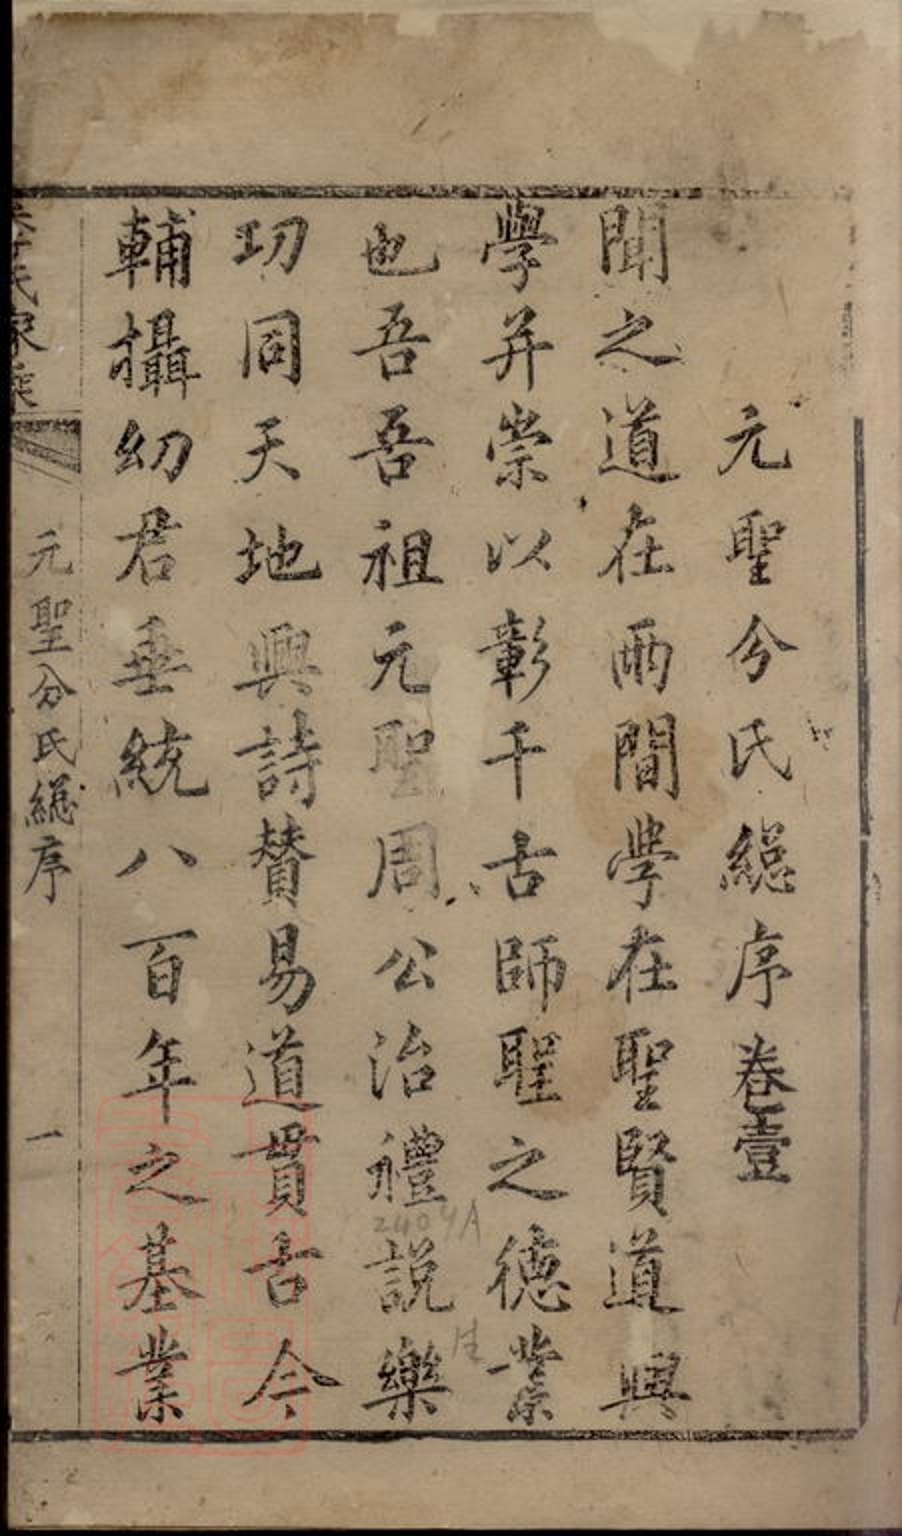 元聖分氏緫序卷壹
聞之道在兩間學在聖賢道與
學并崇以彰千古師聖之德業
也吾吾祖元聖周公治禮說樂
功同天地興詩贊易道貫古今
輔攝幼君垂統八百年之基業
氏家乘
元聖分氏緫序
一
2404A